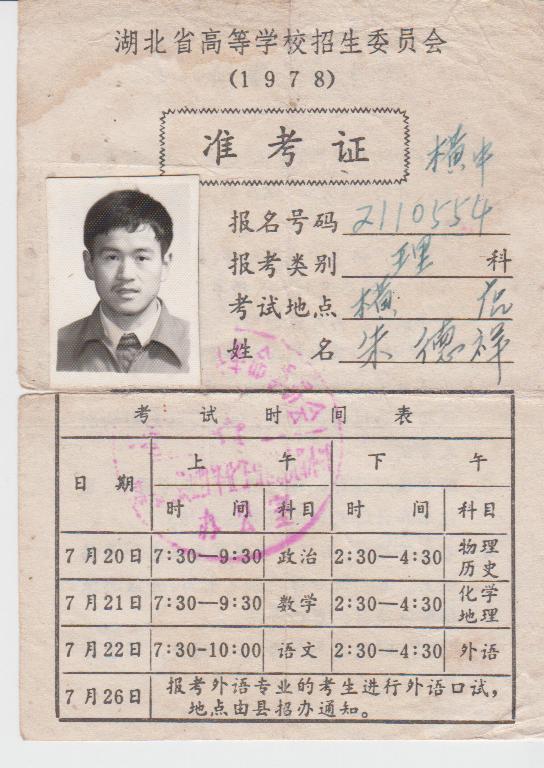 湖北省高等学校招生委员会
(1978)
准考证
横中
报名号码 2110554
报考类别 理 科
考试地点 横
姓 名 朱德祥
考试时间表
日期 上午 下午
时间 科目 时间 科目
7月20日 7:30—9:30 政治 2:30—4:30 物理 历史
7月21日 7:30—9:30 数学 2:30—4:30 化学 地理
7月22日 7:30-10:00 语文 2:30—4:30 外语
7月26日 报考外语专业的考生进行外语口试，
地点由县招办通知。
办公室